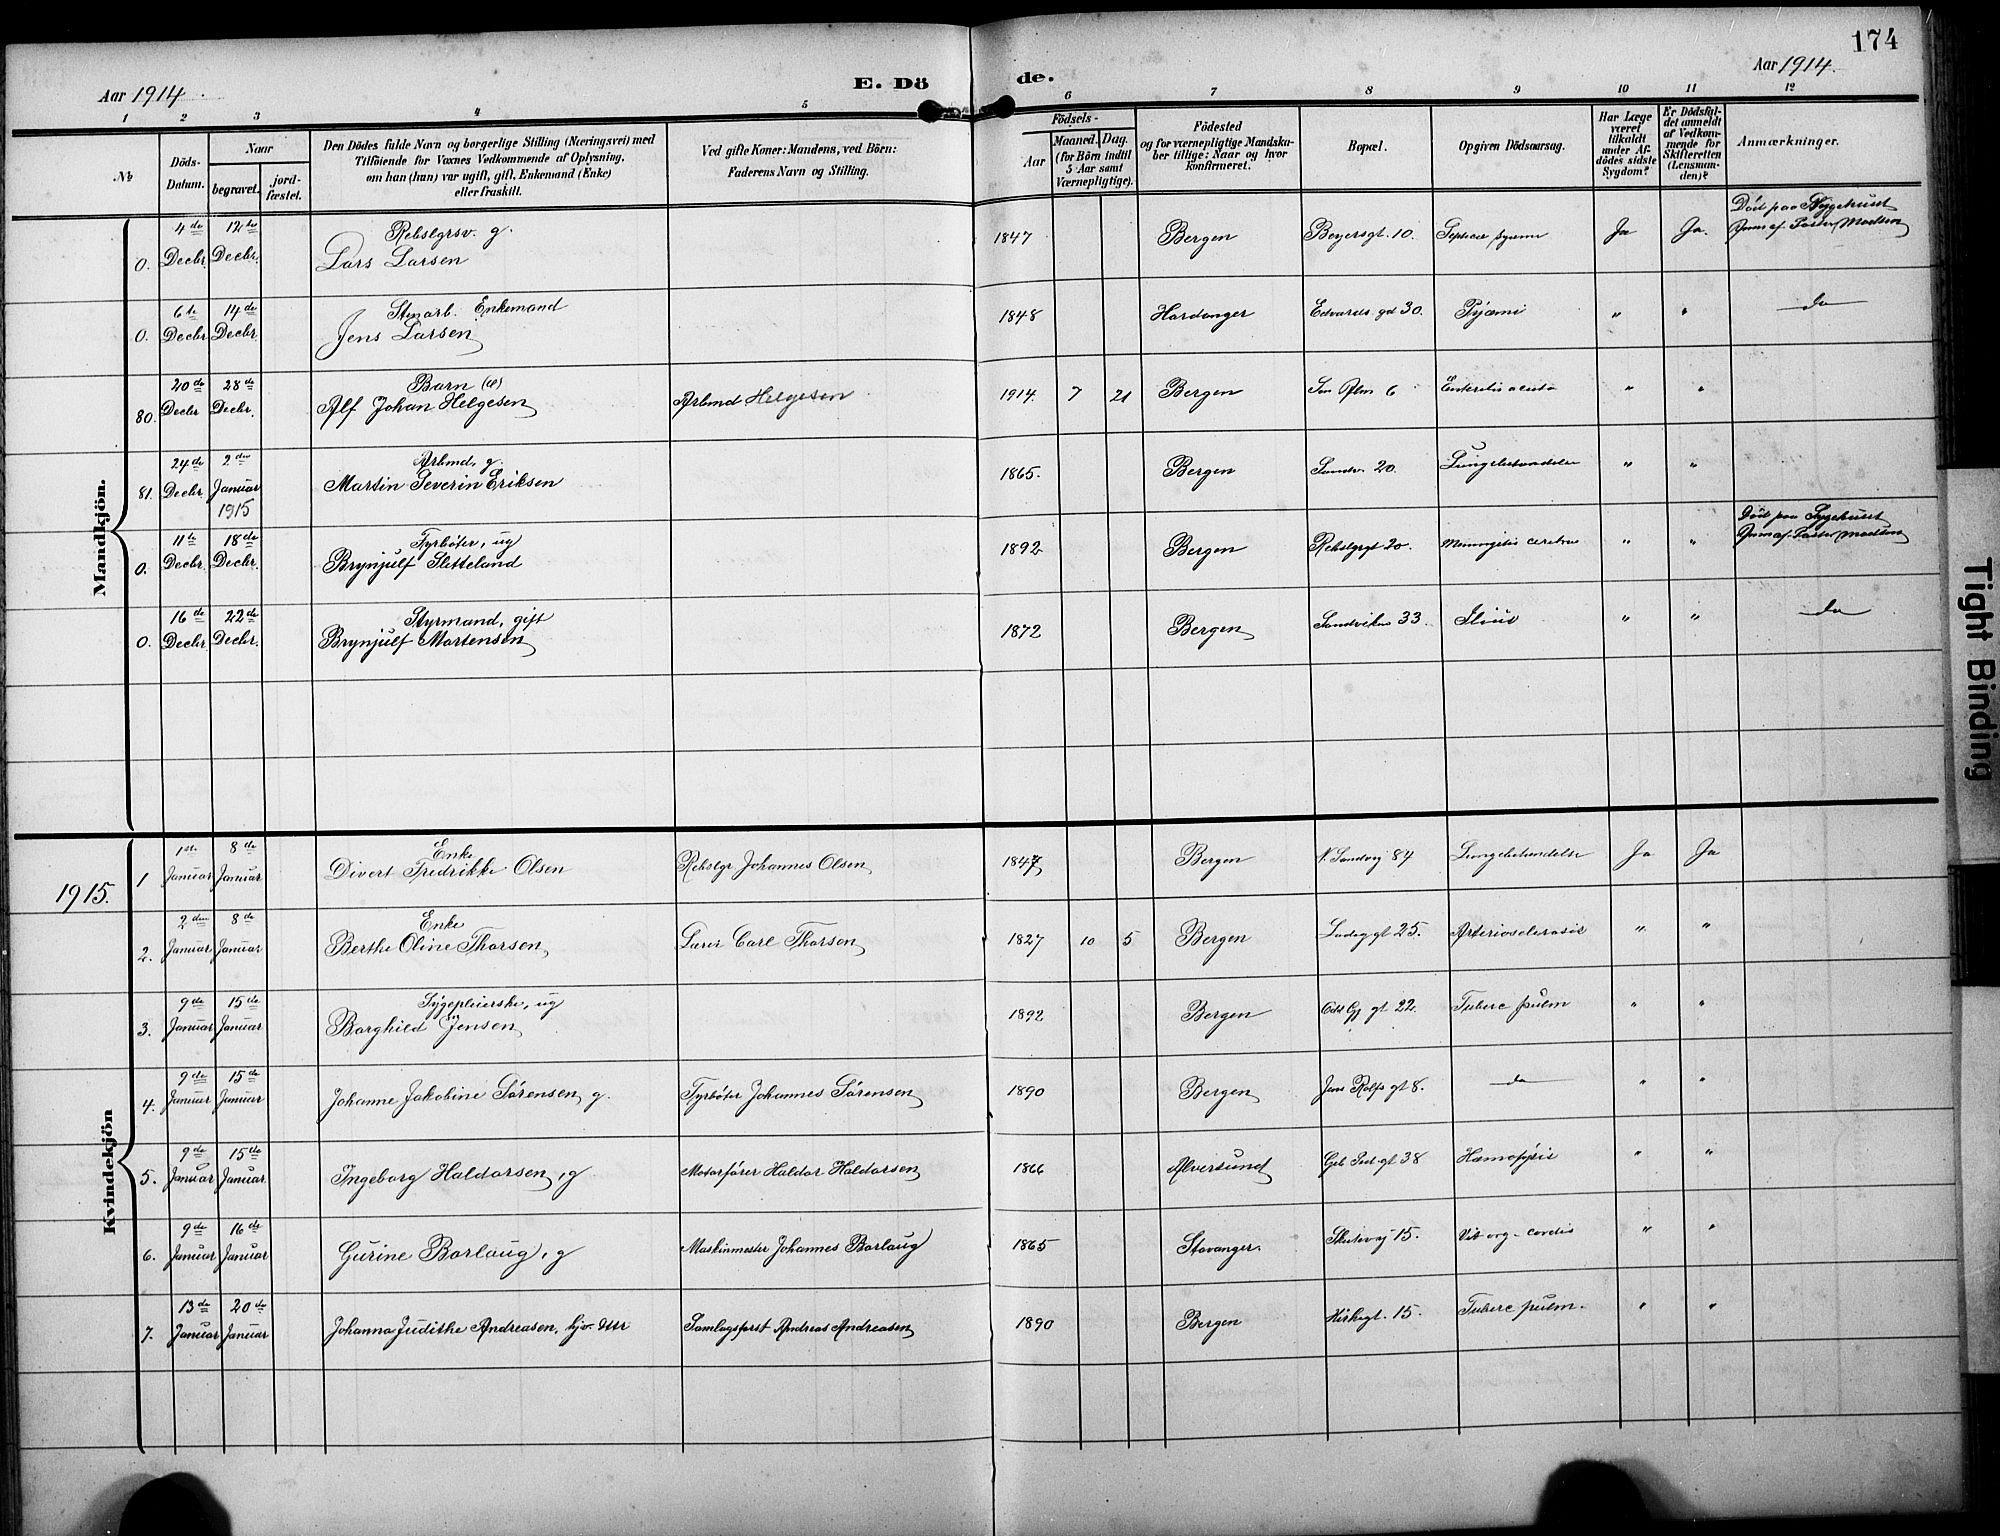 174
Aar 1914.
E. Dö
de.
Aar 1914.
1 2 3 4 5 6 7 8 9 10 11 12
№
Döds-Datum.
Naar
begravet.
jord-fæstet.
Den Dödes fulde Navn og borgerlige Stilling (Næringsvei) med
Tilföiende for Voxnes Vedkommende af Oplysning,
om han (hun) var ugift, gift, Enkemand (Enke)
eller fraskilt.
Ved gifte Koner: Mandens, ved Börn:
Faderens Navn og Stilling.
Födsels-
Aar
Maaned. Dag.
(for Börn indtil
5 Aar samt
Værnepligtige).
Födested
og for værnepligtige Mandska-
ber tillige: Naar og hvor
Konfirmeret.
Bopæl.
Opgiven Dödsaarsag.
Har Læge
været
tilkaldt
under Af-
dödes sidste
Sygdom?
Er Dödsfal-
det anmeldt
af Vedkom-
mende for
Skifteretten
(Lensman-
den)?
Anmærkninger.
Mandkjön.
0. 4de Decbr. 12te Decbr. Rebslgrsv. g. Lars Larsen 1847 Bergen Beyersgt. 10. Ja Ja. Död paa Sygehuset
0. 6te Decbr. 14de Decbr. Stenarb. Enkemand Jens Larsen 1848 Hardanger Edvards. gd 30. Pyæmi " " do
80. 20de Decbr 28de Decbr. Barn Alf Johan Helgesen Arbmd Helgesen 1914. 7 21 Bergen 6 Enteritis acuta " "
81. 24de Decbr. 2den Januar 1915 Arbmd, g. Martin Severin Eriksen 1865. Bergen Sandv. 20. Lungebetændelse " "
0. 11te Decbr. 18de Decbr. Fyrbøter, ug Brynjulf Sletteland 1892 Bergen Rebslgrgt 20. Meningitis cerebro " " Död paa Sygehuset
0. 16de Decbr. 22de Decbr. Styrmand, gift Brynjulf Martensen 1872 Bergen Sandviksv 33. " " do
1915.
Kvindekjön
1 1ste Januar 8de Januar Enke Divert Fredrikke Olsen Rebslgr Johannes Olsen 1847 Bergen N. Sandvj 84 Lungebetændelse Ja Ja
2. 2den Januar 8de Januar Enke Berthe Oline Thorsen Lærer Carl Thorsen 1827 10 5 Bergen Ladeggt 25. Arteriosclerosis " "
3. 9de Januar 15de Januar Sygepleierske, ug Borghild Jensen 1892 Bergen gt 22. Tuberc pulm " "
4. 9de Januar 15de Januar Johanne Jakobine Sørensen, g. Fyrbøter Johannes Sørensen 1890 Bergen Jens Rolfs gt 8. do " "
5. 9de Januar 15de Januar Ingeborg Haldorsen, g Motorfører Haldor Haldorsen 1866 Alversund gt 38 " "
6. 9de Januar 16de Januar Gurine Borlaug, g Maskinmester Johannes Borlaug 1865 Stavanger. Skutevj 15. Vit org. cordis " "
7. 13de Januar 20de Januar Johanna Judithe Andreasen, hjv. dttr Samlagsforst Andreas Andreasen 1890 Bergen Kirkegt. 15. Tuberc pulm. " "
Tight Binding